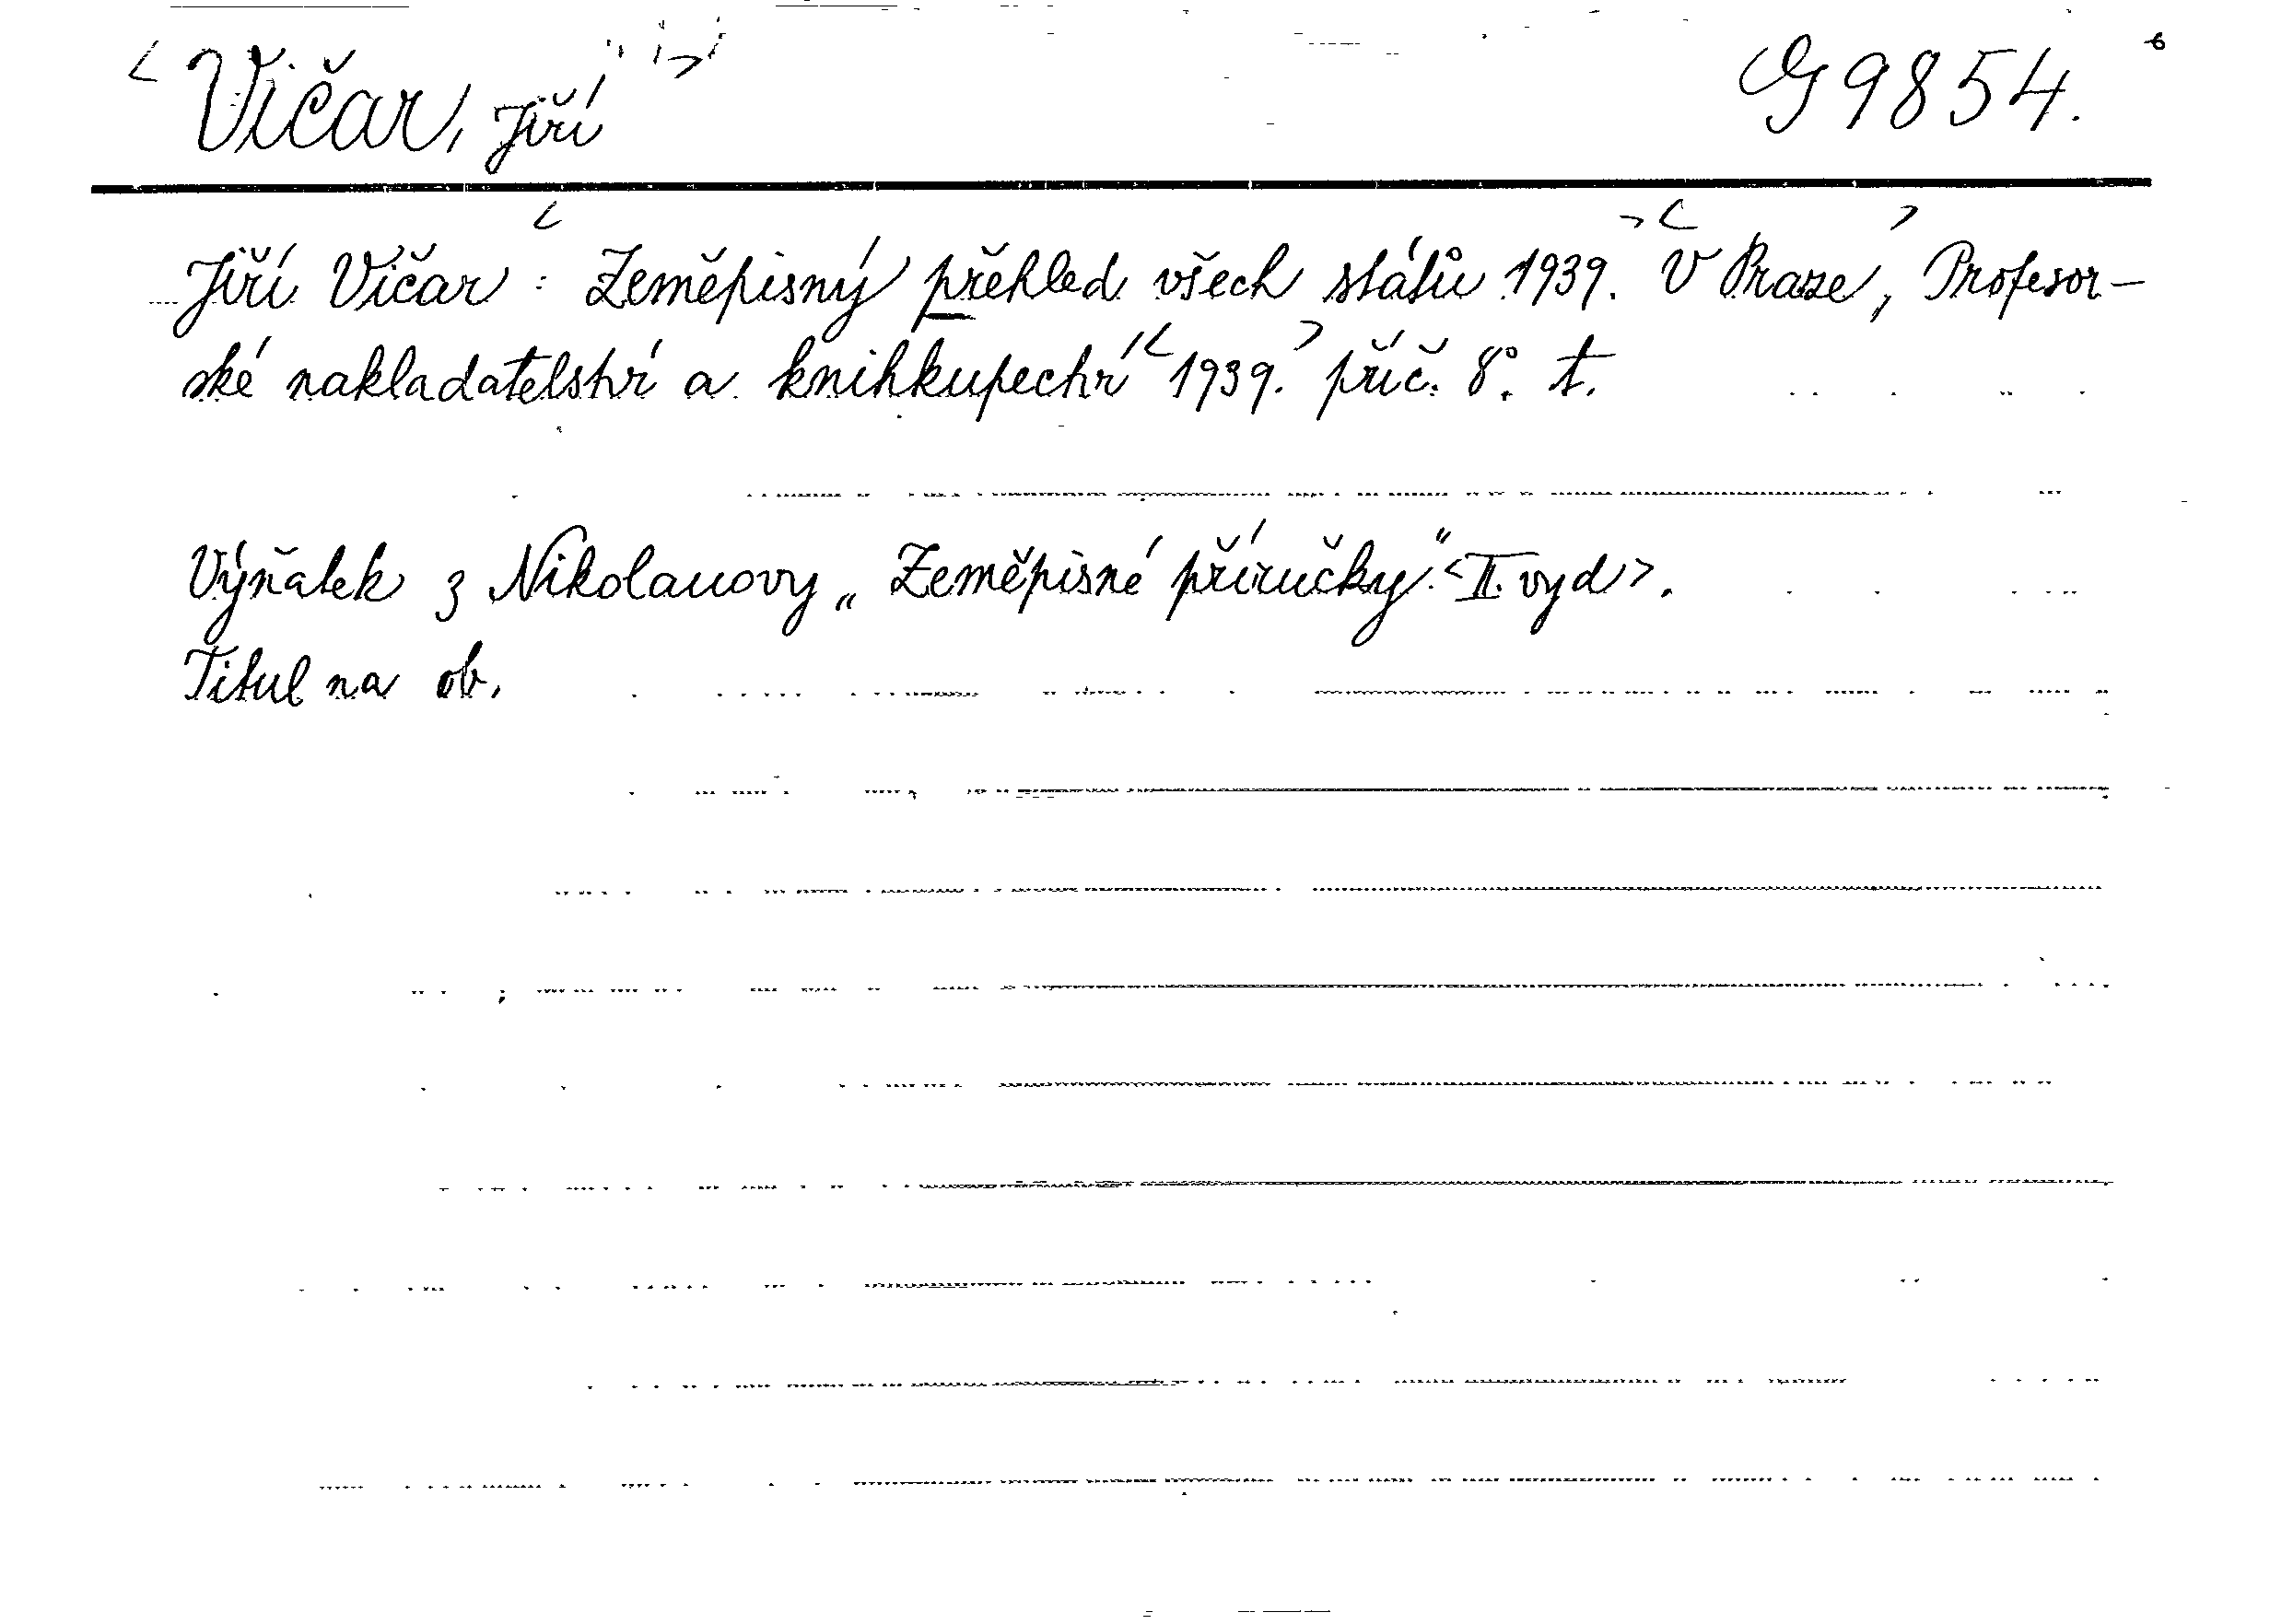 Vičar, Jiří G 9854.
Jiří Vičar: Zeměpisný přehled všech států 1939. V Praze, Profesor-
ské nakladatelství a knihkupectví 1939. příč. 8°. t.
Výňatek z Nikolauovy „Zeměpisné příručky“ <II. vyd>.
Titul na ob.